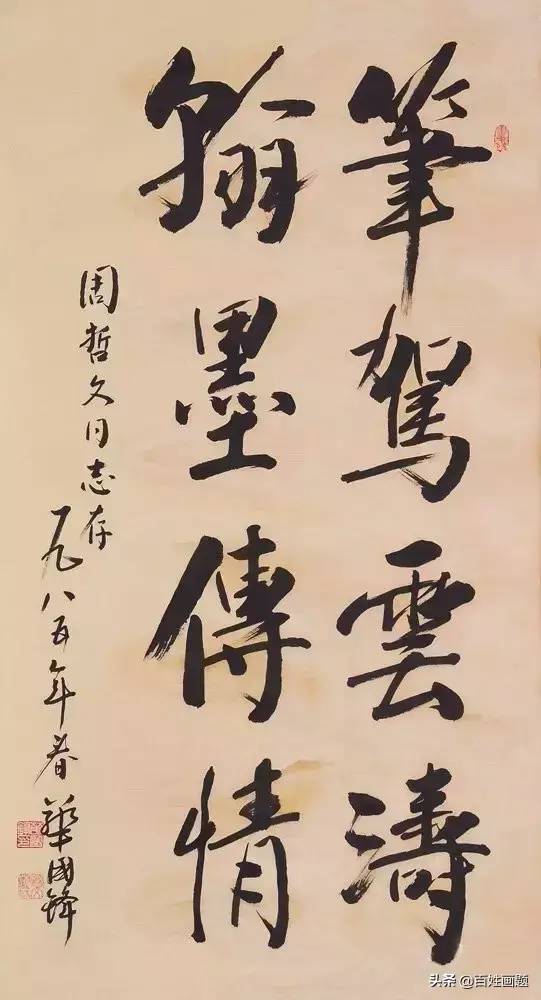 筆駕雲濤
翰墨傳情
周哲文同志存
一九八五年春
華國鋒
头条@百姓画题